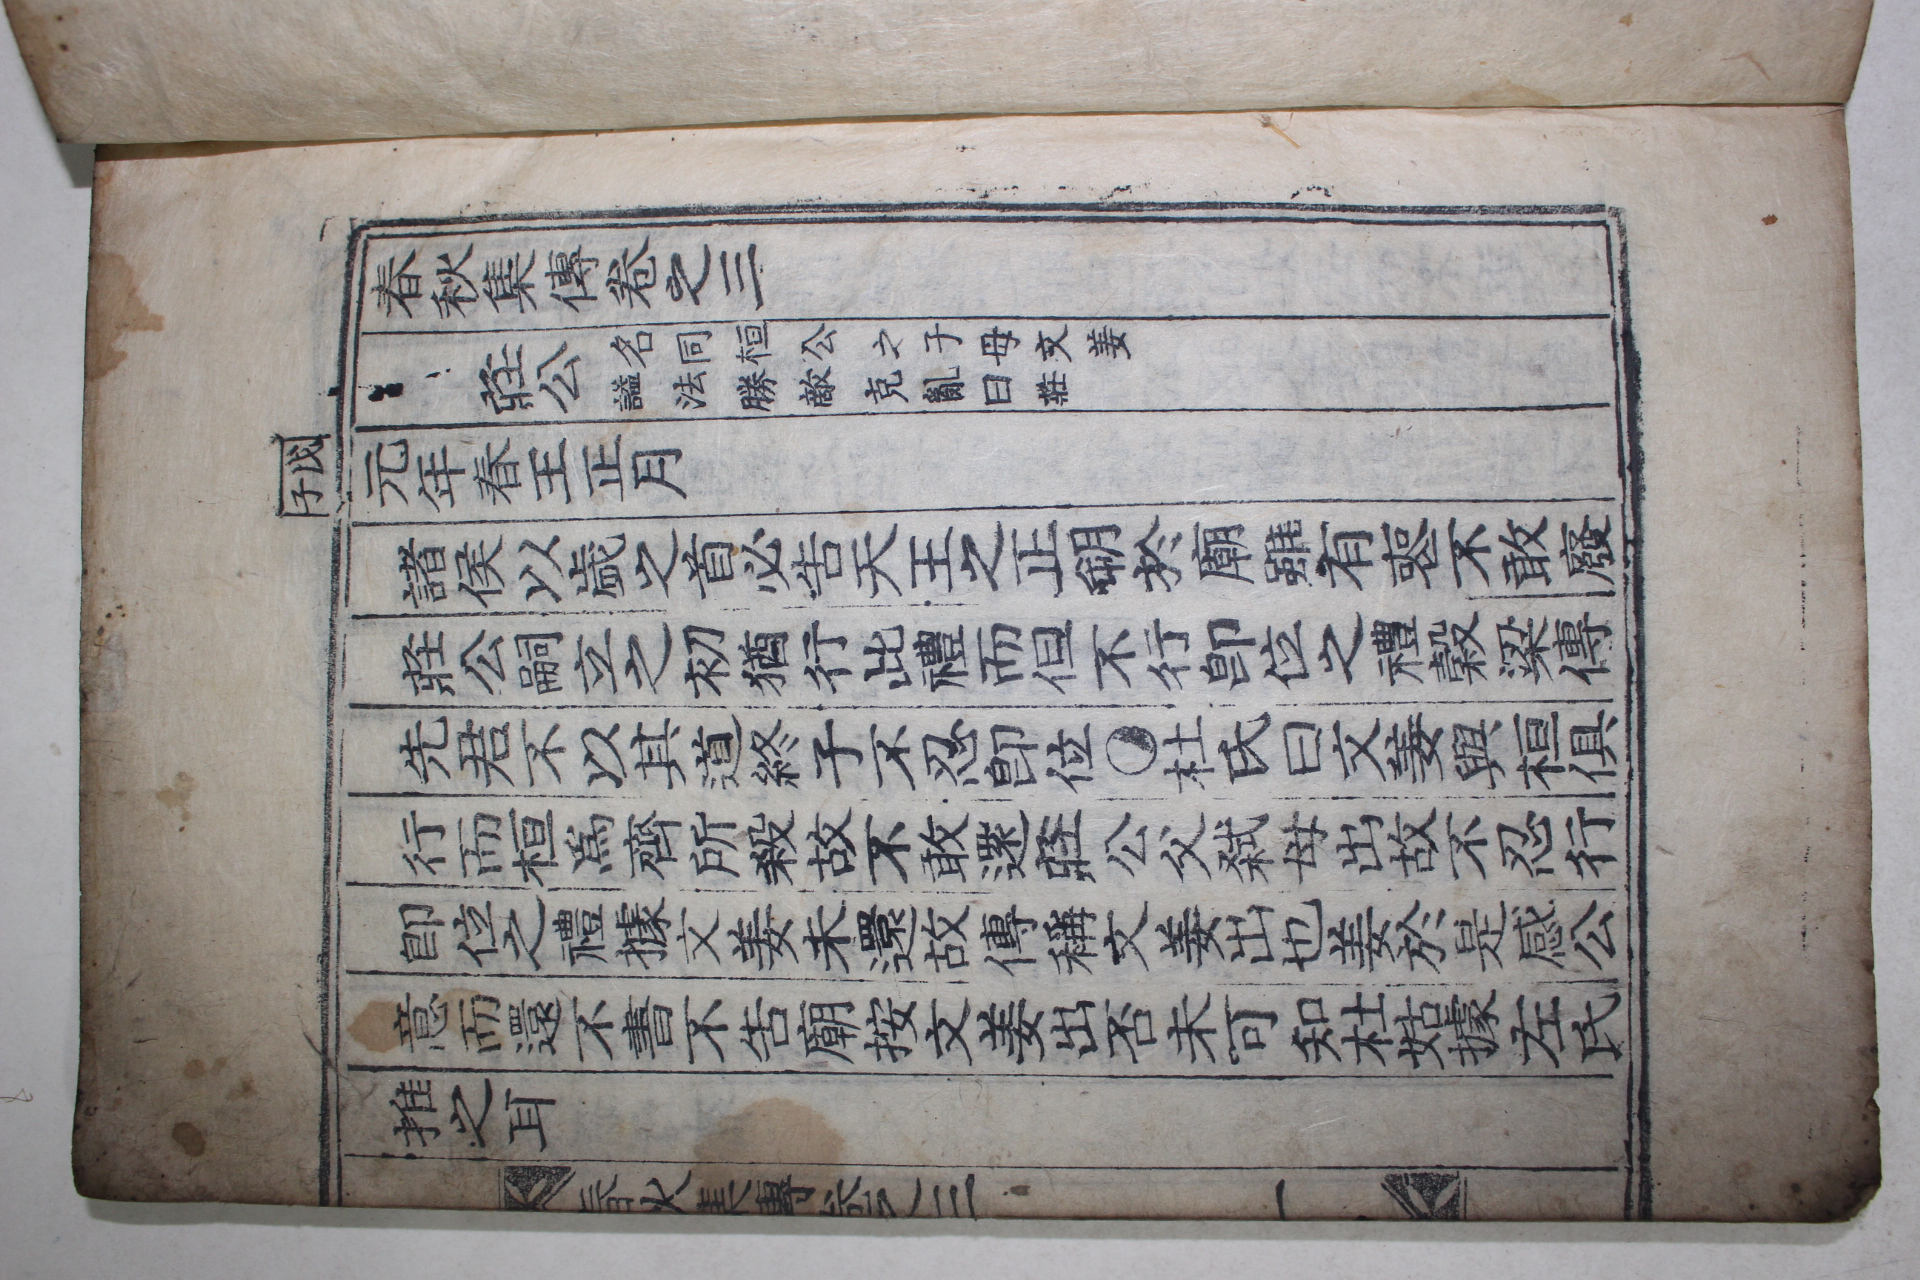 春秋集傳卷之三
莊公
名同桓公之子母文姜
諡法勝敵克亂曰莊
戊子
元年春王正月
諸侯以歲之首必告天王之正朔於廟雖有喪不敢廢
莊公嗣立之初猶行此禮而但不行卽位之禮穀梁傳
先君不以其道終子不忍卽位○杜氏曰文姜與桓俱
行而桓爲齊所殺故不敢還莊公父弑母出故不忍行
卽位之禮據文姜未還故傳稱文姜出也姜於是感公
意而還不書不告廟按文姜出否未可知杜姑據左氏
推之耳
春秋集傳卷之三 一